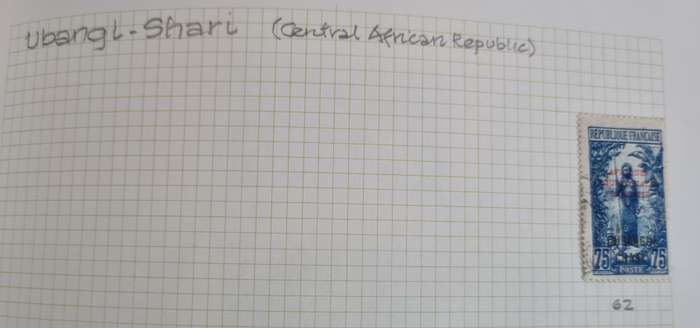 Ubangi-Shari (Central African Republic)
RÉPUBLIQUE FRANÇAISE
75 75
POSTE
62